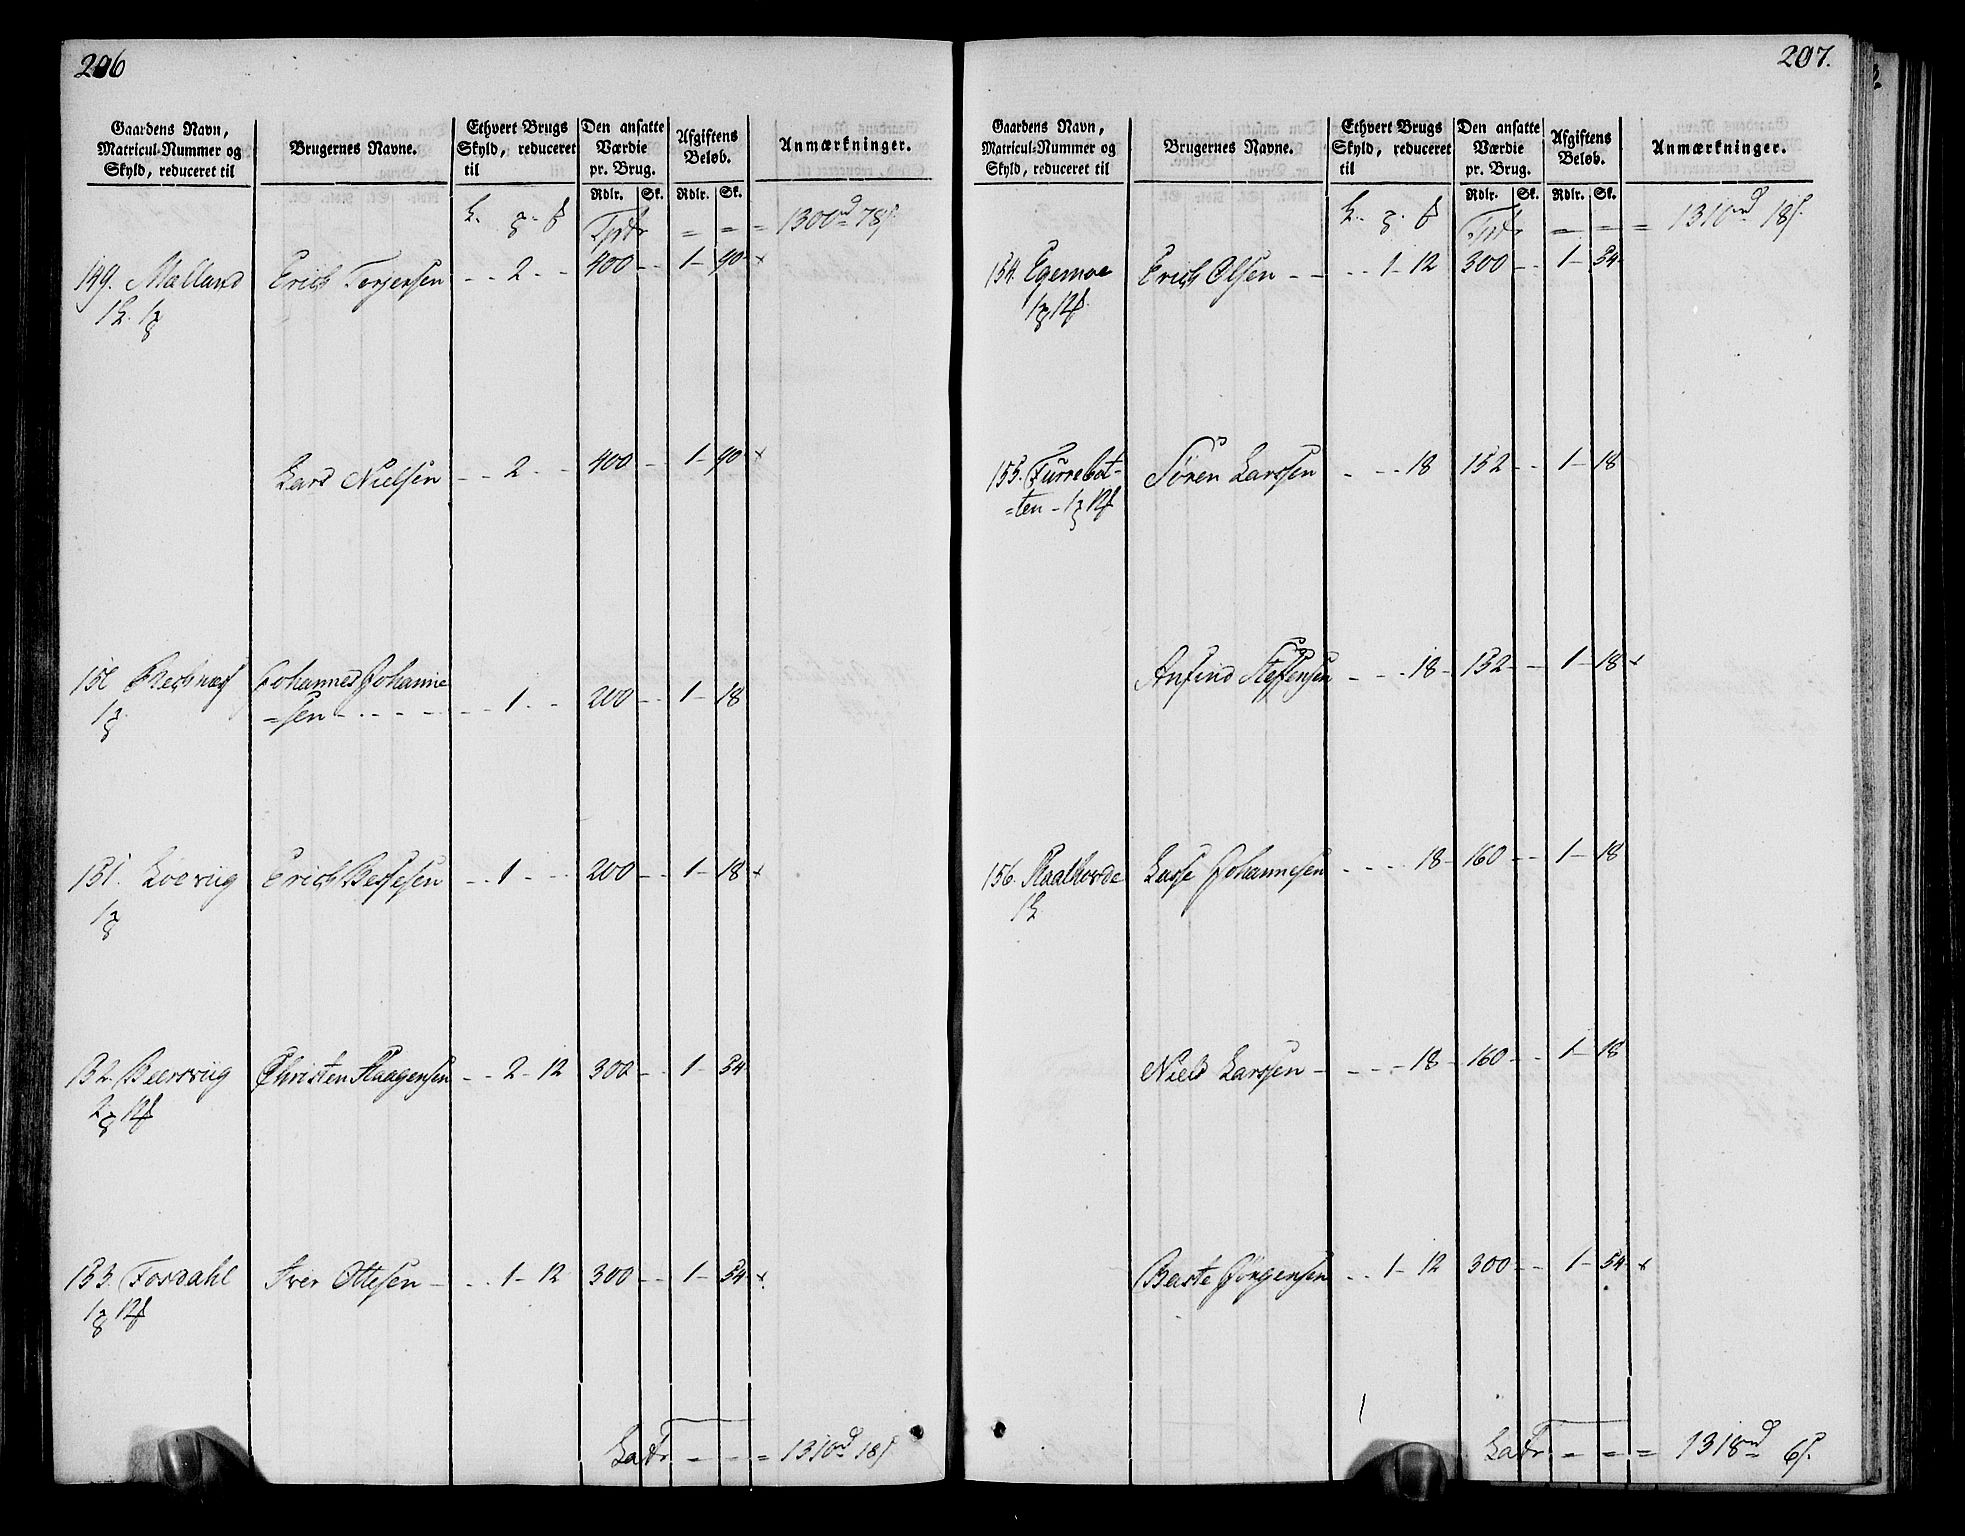 206
Gaardens Navn, Matricul-Nummer og Skyld, reduceret til
Brugernes Navne.
Ethvert Brugs Skyld, reduceret til
Den ansatte Værdie pr. Brug.
Afgiftens Beløb.
Anmærkninger.
Rdlr. Sk. Rdlr. Sk.
Tpdr = = = 1300rd 78s.
149. Mælland Erich Terjersen - - 2 - - 400 - - 1 - 90 - x
Lars Nielsen - - 2 - - 400 - - 1 - 90 - x
Johannes Johanne
=sen - - - - - - 1 - - 200 - - 1 - 18
151. Erich - - 1 - - 200 - - 1 - 18 - x
152. Beervig Christen Haagensen - - 2 - 12 300 - - 1 - 54
153. Fosdahl Iver Ottesen - - - 1 - 12 300 - - 1 - 54 - x
Latr - - = 1310rd 18s.
207.
Gaardens Navn, Matricul-Nummer og Skyld, reduceret til
Brugernes Navne.
Ethvert Brugs Skyld, reduceret til
Den ansatte Værdie pr. Brug.
Afgiftens Beløb.
Anmærkninger.
Rdlr. Sk. Rdlr. Sk.
Tpdr = = = 1310rd 18s.
154. Egemoe Erich Olsen - - - - 1 - 12 300 - - 1 - 54
155. Furrebot-
=ten - Søren Larssen - - - 18 152 - - 1 - 18
Anfind Steffensen - - - 18 - 152 - - 1 - 18 - x
156. Lasse Johannesen - - - - 18 - 160 - - 1 - 18
Niels Larssen - - - - - 18 - 160 - - 1 - 18
Baste Jørgensen - - 1 - 12 300 - - 1 - 54 - x
Latr = = = 1318rd 6s.